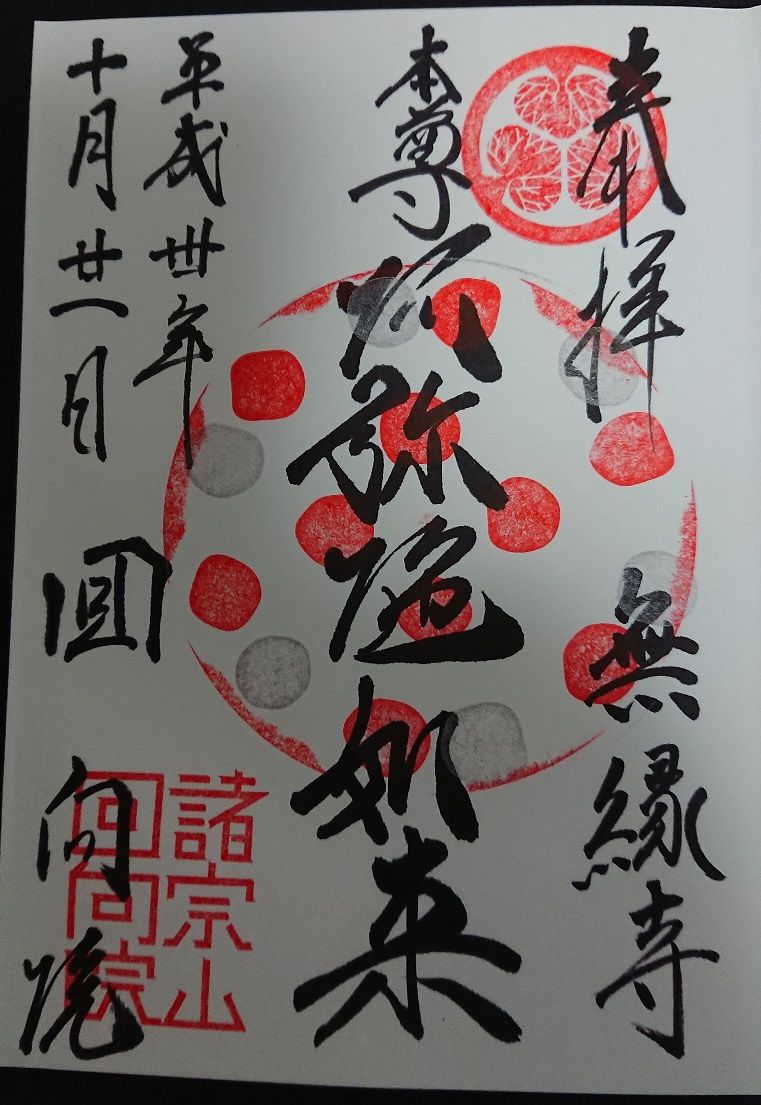 奉拝　無縁寺
本尊　阿弥陀如来
平成丗年
十月廿一日　回向院
諸宗山
回向院